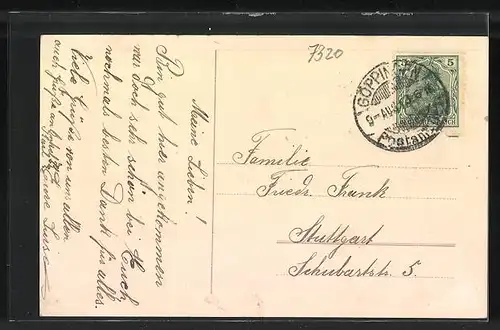 7320
5
GÖPPINGEN
9-AUG
Postamt
Meine Lieben!
Bin gut hier angekommen
war doch sehr schön bei Euch
nochmals besten Dank für alles.
Viele Grüße von uns allen
auch Grüße an
Eure Luise
Familie
Friedr. Frank
Stuttgart
Schubartstr. 5.